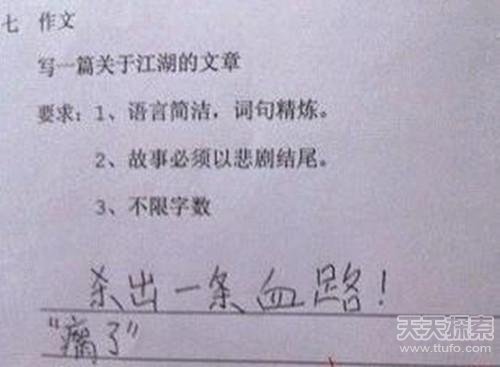 七 作文
写一篇关于江湖的文章
要求：1、语言简洁，词句精炼。
2、故事必须以悲剧结尾。
3、不限字数
杀出一条血路！
“瘸了”
天天探索
www.ttufo.com